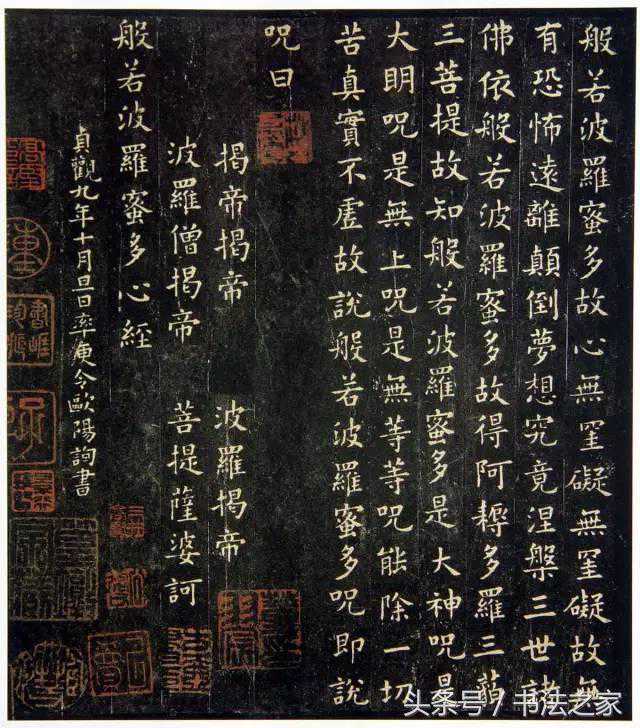 般若波羅蜜多故心無罣礙無罣礙故無
有恐怖遠離顛倒夢想究竟涅槃三世諸
佛依般若波羅蜜多故得阿耨多羅三藐
三菩提故知般若波羅蜜多是大神咒是
大明咒是無上咒是無等等咒能除一切
苦真實不虛故說般若波羅蜜多咒即說
咒曰
揭帝揭帝 波羅揭帝
波羅僧揭帝 菩提薩婆訶
般若波羅蜜多心經
貞觀九年十月旦日率更令歐陽詢書
头条号 / 书法之家